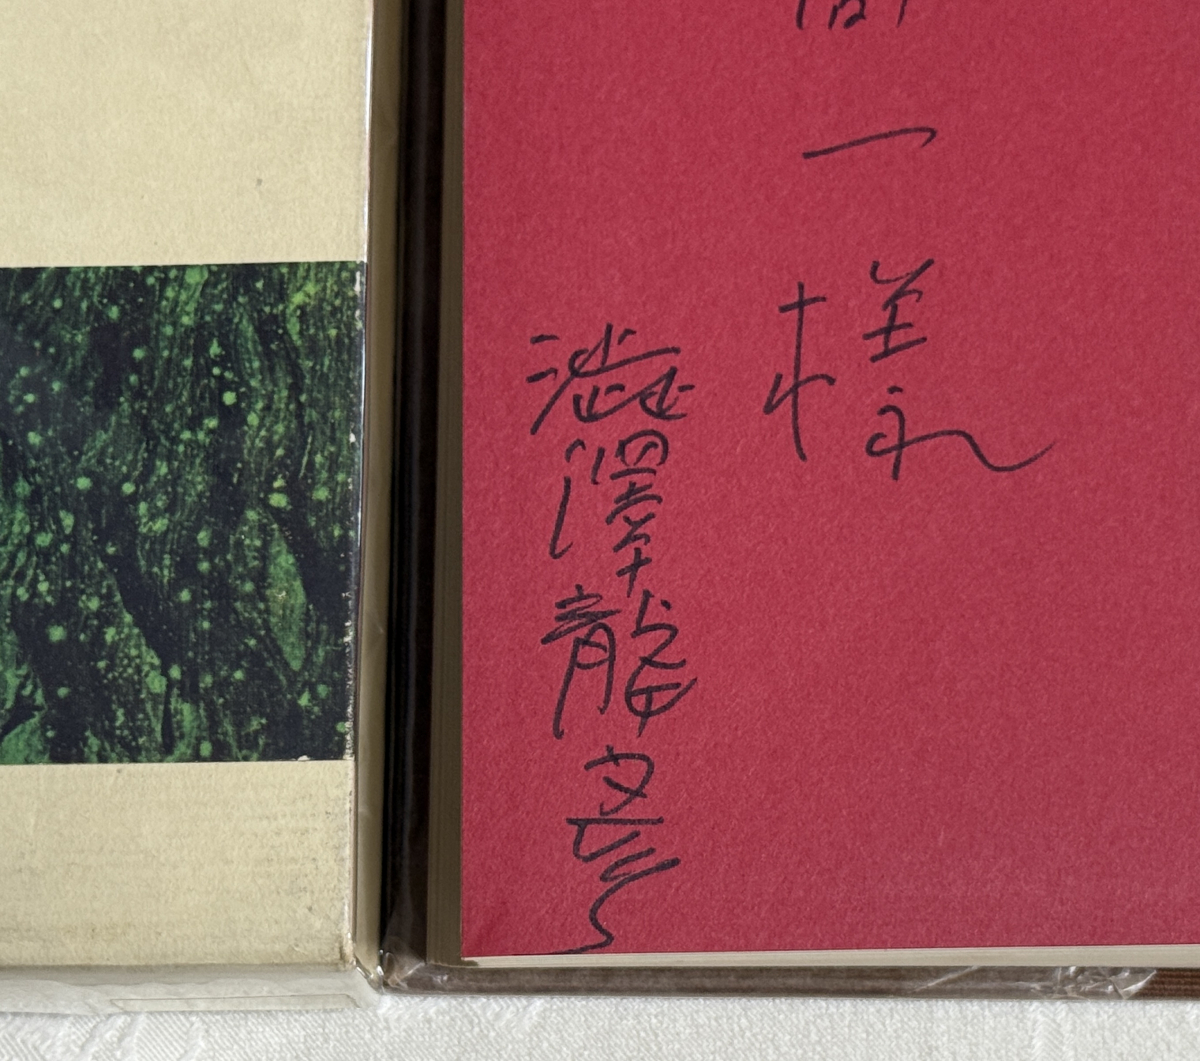 一様
澁澤龍彦